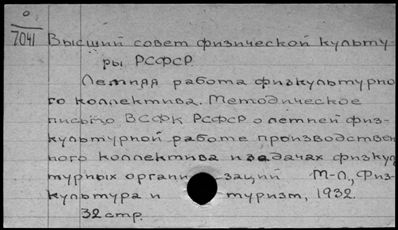 0
7041 Высший совет физической культу-
ры РСФСР.
Летняя работа физкультурно-
го коллектива. Методическое
письмо ВСФК РСФСР о летней физ-
культурной работе производствен
ного коллектива и задачах физкул
турных органи заций М-Л., Физ-
культура и туризм, 1932.
32 стр.